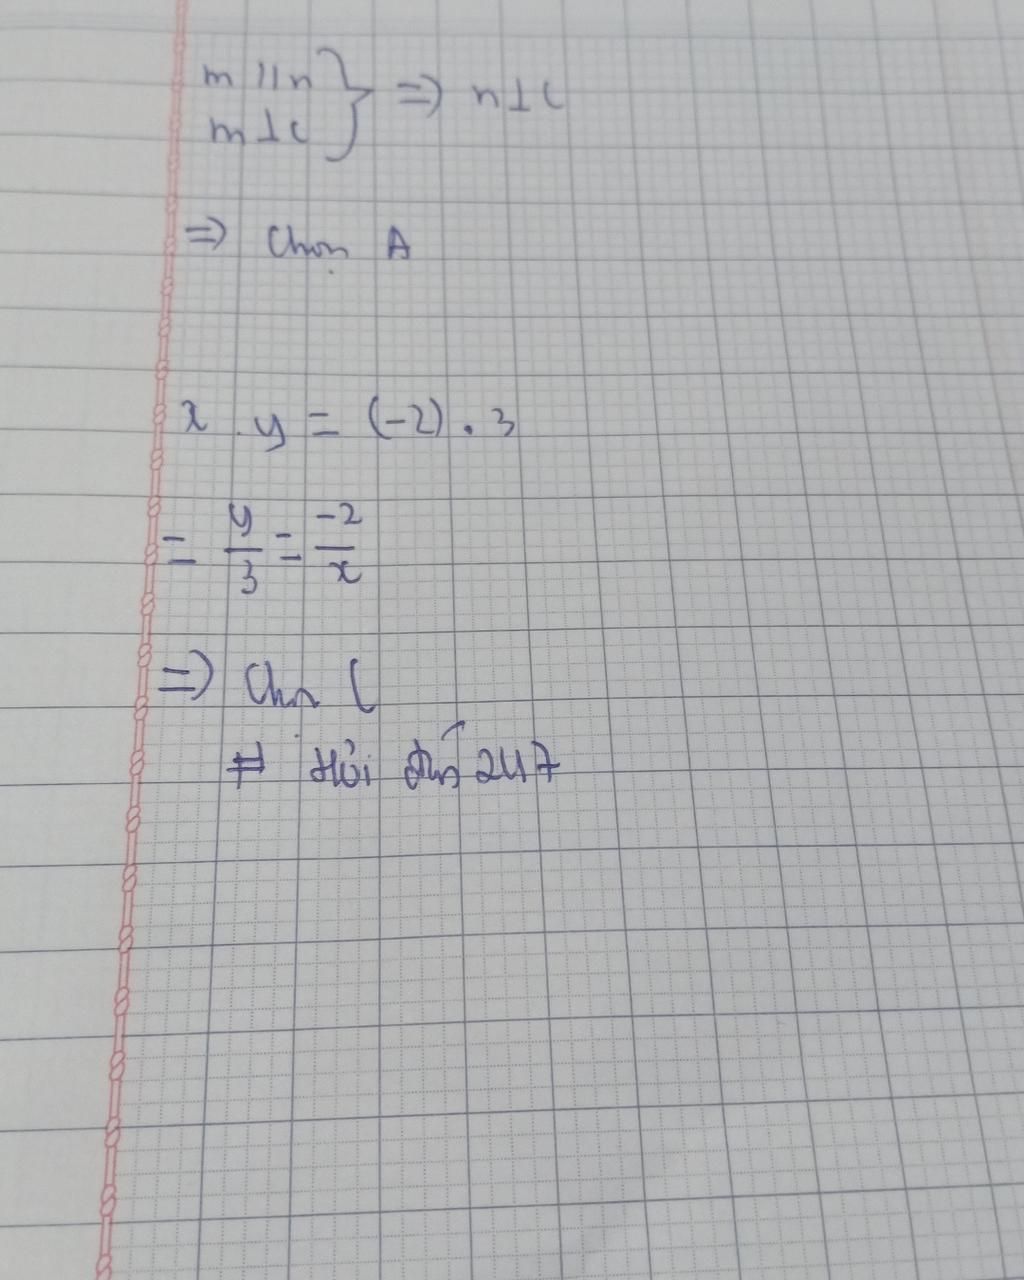 m // n } => n ⊥ c
m ⊥ c
=> Chọn A
x . y = (-2) . 3
= y/3 = -2/x
=> Chọn C
# Hỏi đáp 247